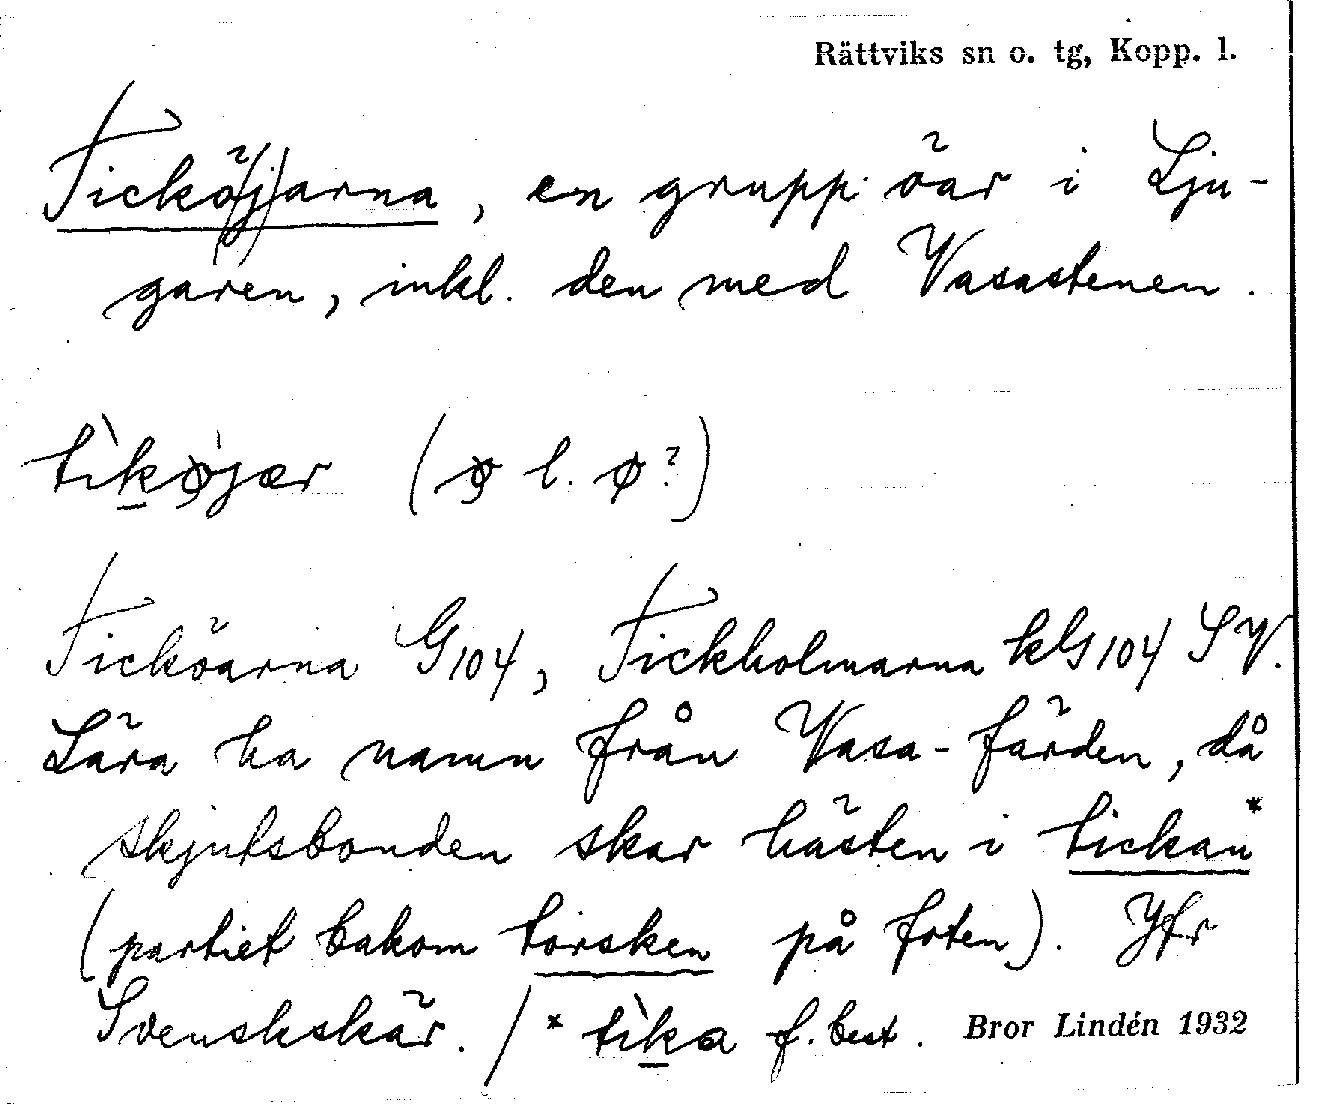 Rättviks sn o. tg, Kopp. l.
Tickö(j)arna, en grupp öar i Lju-
garen, inkl. den med Vasastenen.
tìkøjær (ø l. ø?)
Ticköarna G 104, Tickholmarna klG 104 SV.
Lära ha namn från Vasa-färden, då
skjutsbonden skar hästen i tickan*
(partiet bakom torsken på foten). Jfr
Svenskskär. / * tìka f. best. Bror Lindén 1932